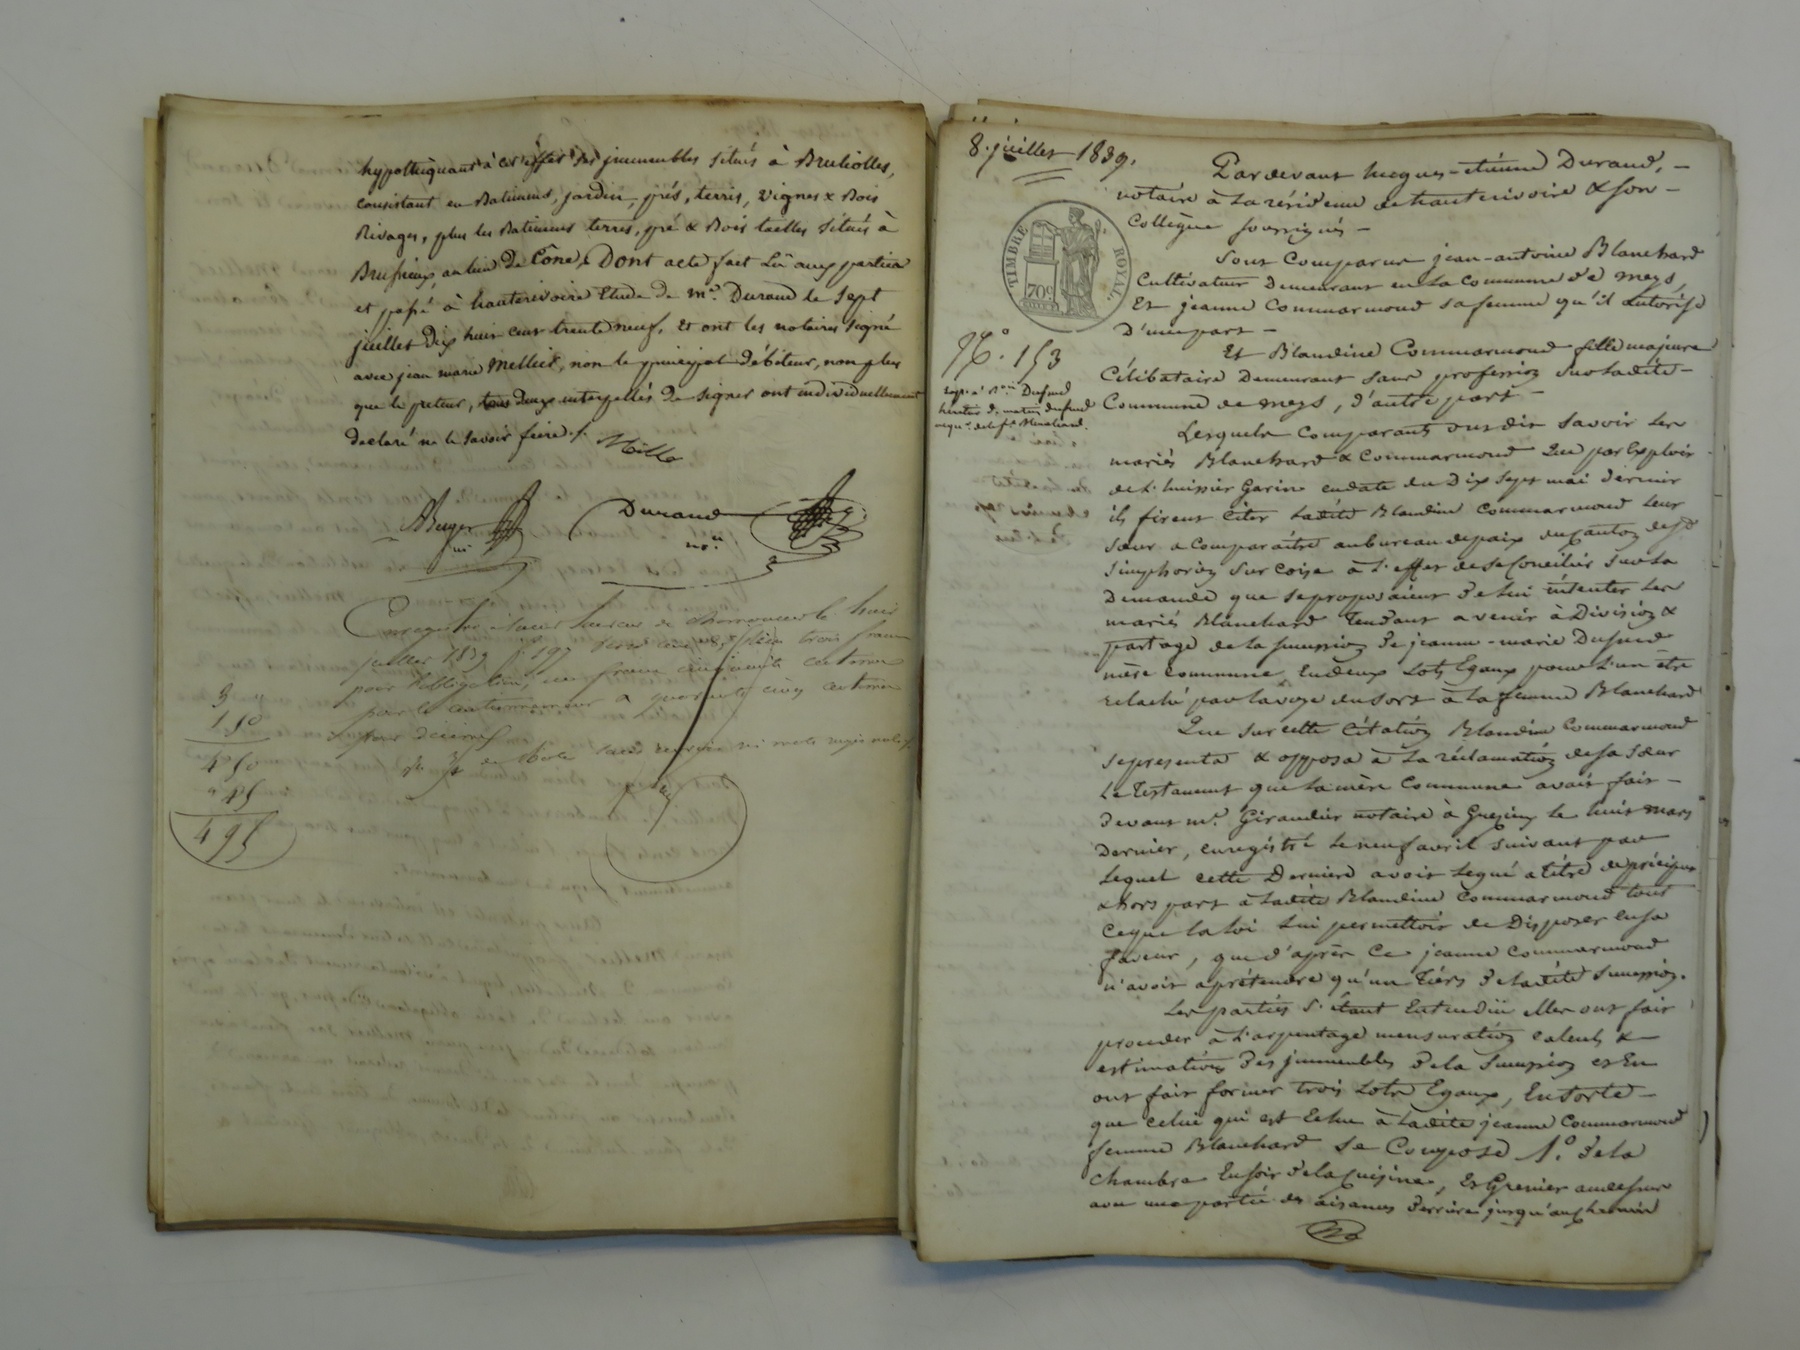 hypothéquant à cet effet ses jmmeubles situés à Brullioles,
consistant en Batiments, jardin, prés, terres, vignes & Bois
Rivages, plus les Batiments terres, pré & Bois taillés situés à
au lieu De Cône, Dont acte fait Lû aux parties
et passé à hauterivoire Etude de me. Durand le Sept
juillet Dix huit cent trente neuf, Et ont les notaires signé
avec jean marie Mellier, non le principal Débiteur, non plus
que le preteur, tous Deux interpellés De signer ont individuellement
declaré ne le savoir faire ./.
Durand
nore.
Enregistré à le huit
juillet 1839 f. 197 trois francs
pour l'obligation, un franc cinquante centimes
pour le cautionnement & quarante cinq centimes
pour décime
3 "
1 50
4 50
" 45
4 95
8. juillet 1839.
TIMBRE ROYAL
70c
No. 153
Pardevant hugues-étienne Durand, -
notaire à La résidence de hauterivoire & son -
Collègue soussignés -
Sont Comparus jean-antoine Blanchard
Cultivateur Demeurant en La Commune de meys,
Et jeanne Commarmond sa femme qu'il autorise
D'une part -
Et Blandine Commarmond fille majeure
Célibataire Demeurant sans profession sus Ladite -
Commune de meys, D'autre part -
Lesquels Comparants ont dit savoir Les
mariés Blanchard & Commarmond Que par Exploit
de l'huissier Garin en date du Dix Sept mai dernier
ils firent Citer Ladite Blandine Commarmond Leur
Sœur a Comparaître au bureau de paix du Canton de St
Simphorien Sur Coise à l'effet de se Concilier sur La
Demande que se proposaient De lui intenter Les
mariés Blanchard Tendant a venir à Division &
partage de la succession De jeanne-marie Dufeud
mère Commune, En deux Lots Egaux pour L'un être
relaché par la voye du sort à La femme Blanchard
Que sur cette Citation Blandine Commarmond
se presenta & opposa à La réclamation de sa Sœur
Le Testament que La mère Commune avait fait -
Devant me. Giraudier notaire à Grezieu Le huit mars
Dernier, enregistré Le neuf avril suivant par
Lequel cette Derniere avait Legué a titre de préciput
& hors part à Ladite Blandine Commarmond tout
Ce que La Loi Lui permettoit de Disposer En sa
faveur, que D'après Ce jeanne Commarmond
n'avoit a prétendre qu'un Tiers De Ladite Succession.
Les parties S'étant Entendu Elles ont fait
proceder à L'arpentage mensuration calculs &
estimation Des jmmeubles De la Succession et En
ont fait former trois Lots Egaux, En sorte -
que Celui qui est Echu à Ladite jeanne Commarmond
femme Blanchard se Compose 1o. De la
Chambre En soir De la Cuisine, Et Grenier au dessus
avec une partie des aisances Derrière jusqu'au chemin